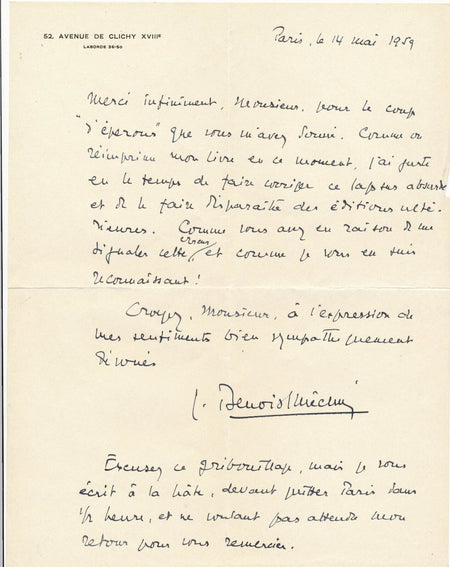 52, AVENUE DE CLICHY XVIIIᵉ
LABORDE 36-50
Paris, le 14 mai 1959
Merci infiniment, Monsieur, pour le coup
"d'éperons" que vous m'avez donné. Comme on
réimprime mon livre en ce moment, j'ai juste
eu le temps de faire corriger ce lapsus absurde
et de le faire disparaître des éditions ulté-
rieures. Comme vous avez eu raison de me
signaler cette erreur, et comme je vous en suis
reconnaissant !
Croyez, Monsieur, à l'expression de
mes sentiments bien sympathiquement
dévoués
J. Benoist-Méchin
Excusez ce gribouillage, mais je vous
écrit à la hâte, devant quitter Paris dans
1/2 heure, et ne voulant pas attendre mon
retour pour vous remercier.